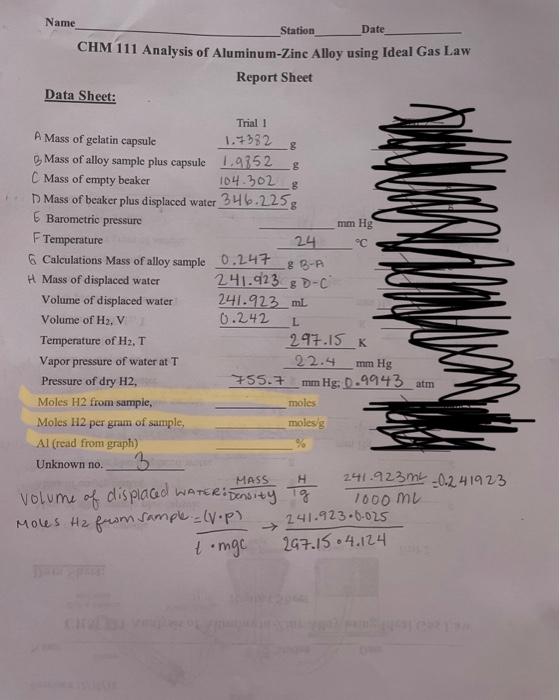 Name Station Date
CHM 111 Analysis of Aluminum-Zinc Alloy using Ideal Gas Law
Report Sheet
Data Sheet:
Trial 1
A Mass of gelatin capsule 1.7382 g
B Mass of alloy sample plus capsule 1.9852 g
C Mass of empty beaker 104.302 g
D Mass of beaker plus displaced water 346.225 g
E Barometric pressure mm Hg
F Temperature 24 °C
G Calculations Mass of alloy sample 0.247 g B-A
H Mass of displaced water 241.923 g D-C
Volume of displaced water 241.923 mL
Volume of H2, V 0.242 L
Temperature of H2, T 297.15 K
Vapor pressure of water at T 22.4 mm Hg
Pressure of dry H2, 755.7 mm Hg; 0.9943 atm
Moles H2 from sample, moles
Moles H2 per gram of sample, moles/g
Al (read from graph) %
Unknown no. 3
Volume of displaced WATER: MASS H 241.923mL =0.241923
Density 1g 1000 mL
Moles H2 from sample = (V·P) → 241.923·0.025
t·mgc 297.15·4.124